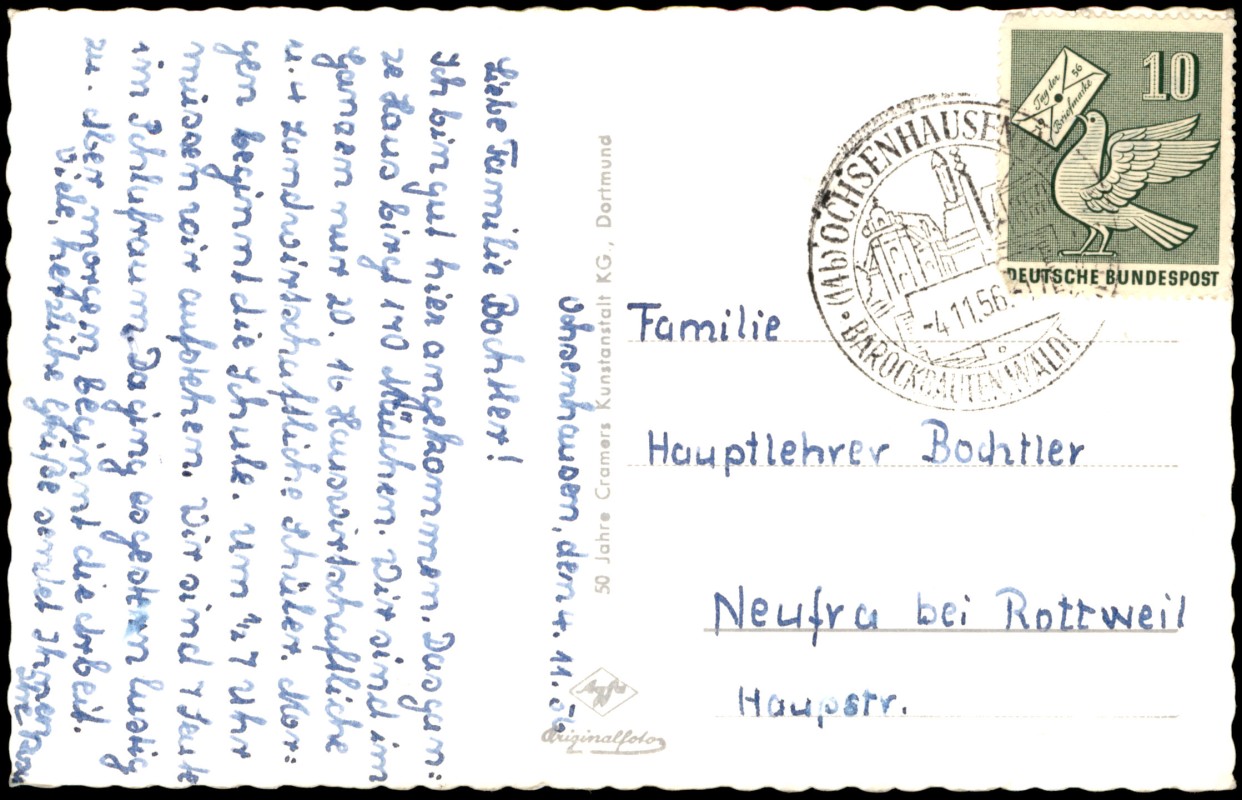 Ochsenhausen, den 4. 11. 56
Liebe Familie Bochtler!
Ich bin gut hier angekommen. Das gan=
ze Haus birgt 140 Mädchen. Wir sind im
Ganzen nur 20. 16 Hauswirtschaftliche
u. 4 Landwirtschaftliche Schüler. Mor=
gen beginnt die Schule. Um ½ 7 Uhr
müssen wir aufstehen. Wir sind 7 Leute
im Schlafraum. Da ging es gestern lustig
zu. Aber morgen beginnt die Arbeit.
Viele, herzliche Grüße sendet Ihnen
Ihre
50 Jahre Cramers Kunstanstalt KG., Dortmund
Agfa
Originalfoto
Tag der
Briefmarke
56
10
DEUTSCHE BUNDESPOST
OCHSENHAUSEN
-4.11.56
BAROCKBAUTEN, WALD
Familie
Hauptlehrer Bochtler
Neufra bei Rottweil
Haupstr.